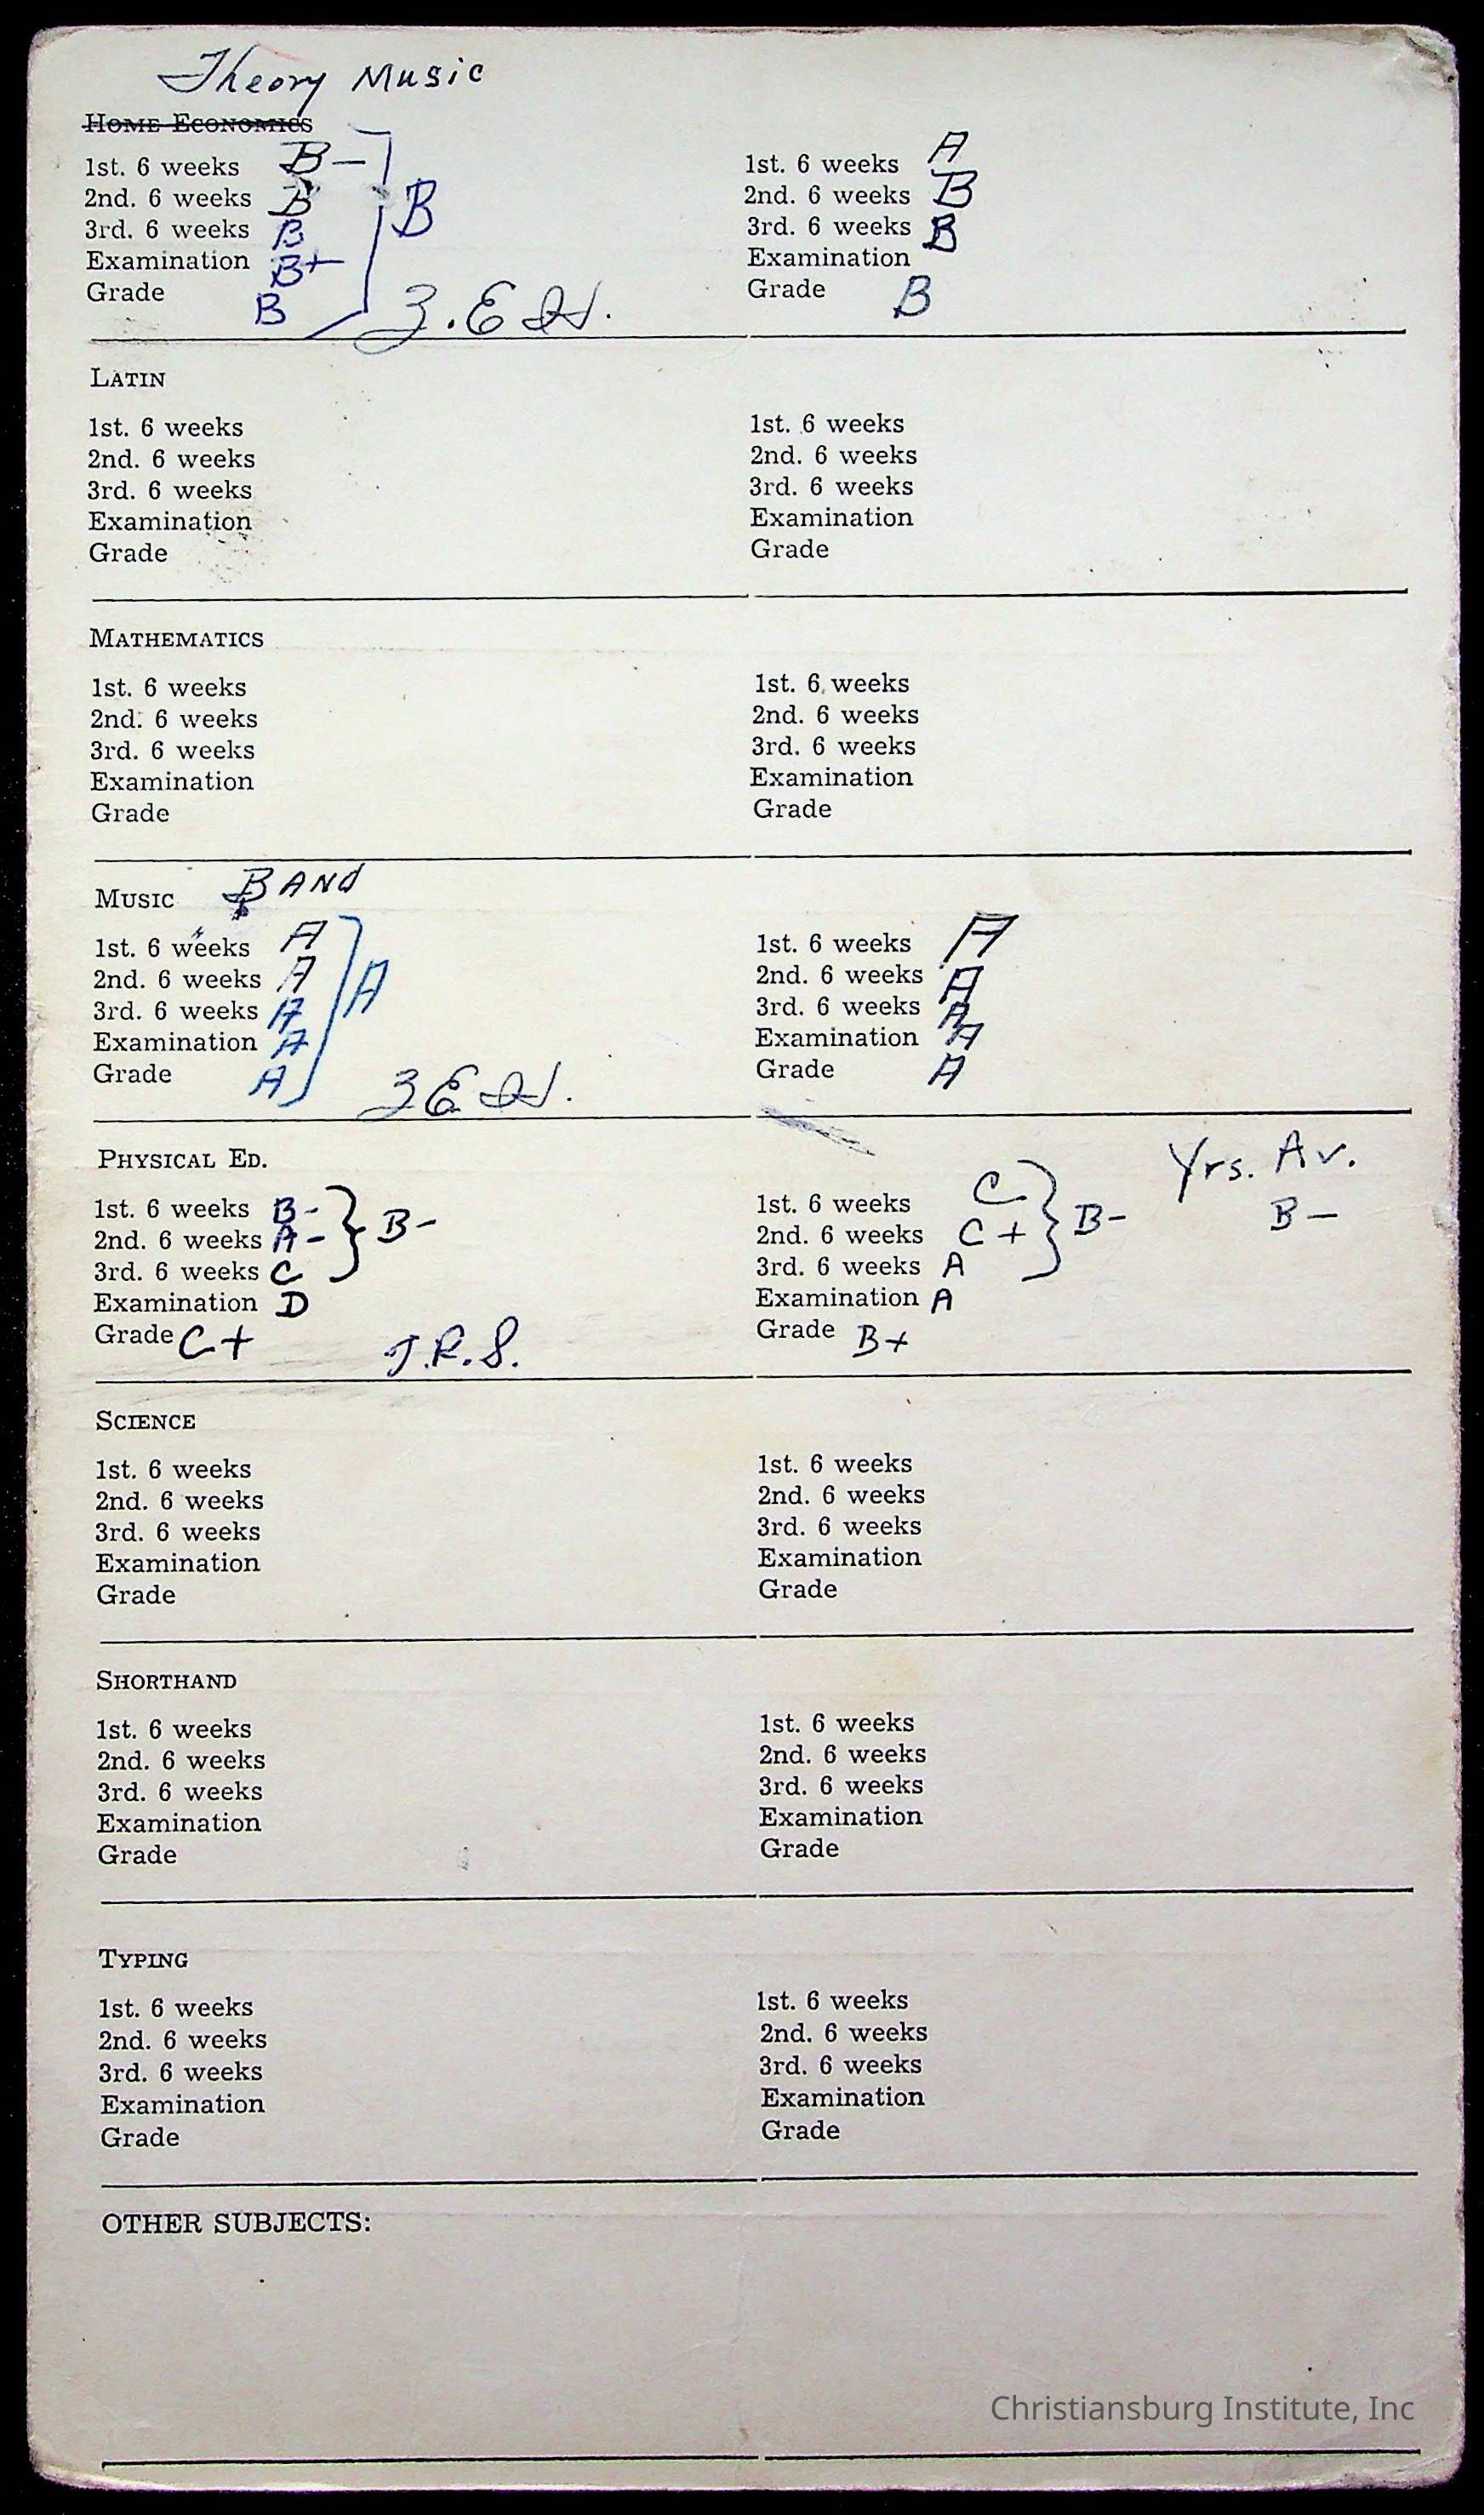 Theory Music
Home Economics
1st. 6 weeks B-
2nd. 6 weeks B
3rd. 6 weeks B
Examination B+
Grade B
B
1st. 6 weeks A
2nd. 6 weeks B
3rd. 6 weeks B
Examination
Grade B
Latin
1st. 6 weeks
2nd. 6 weeks
3rd. 6 weeks
Examination
Grade
1st. 6 weeks
2nd. 6 weeks
3rd. 6 weeks
Examination
Grade
Mathematics
1st. 6 weeks
2nd. 6 weeks
3rd. 6 weeks
Examination
Grade
1st. 6 weeks
2nd. 6 weeks
3rd. 6 weeks
Examination
Grade
Music BAND
1st. 6 weeks A
2nd. 6 weeks A
3rd. 6 weeks A
Examination A
Grade A
A
1st. 6 weeks A
2nd. 6 weeks A
3rd. 6 weeks A
Examination A
Grade A
Physical Ed.
1st. 6 weeks B-
2nd. 6 weeks A-
3rd. 6 weeks C
B-
Examination D
Grade C+
J.R.S.
1st. 6 weeks C
2nd. 6 weeks C+
3rd. 6 weeks A
B-
Examination A
Grade B+
Yrs. Av.
B-
Science
1st. 6 weeks
2nd. 6 weeks
3rd. 6 weeks
Examination
Grade
1st. 6 weeks
2nd. 6 weeks
3rd. 6 weeks
Examination
Grade
Shorthand
1st. 6 weeks
2nd. 6 weeks
3rd. 6 weeks
Examination
Grade
1st. 6 weeks
2nd. 6 weeks
3rd. 6 weeks
Examination
Grade
Typing
1st. 6 weeks
2nd. 6 weeks
3rd. 6 weeks
Examination
Grade
1st. 6 weeks
2nd. 6 weeks
3rd. 6 weeks
Examination
Grade
OTHER SUBJECTS:
Christiansburg Institute, Inc